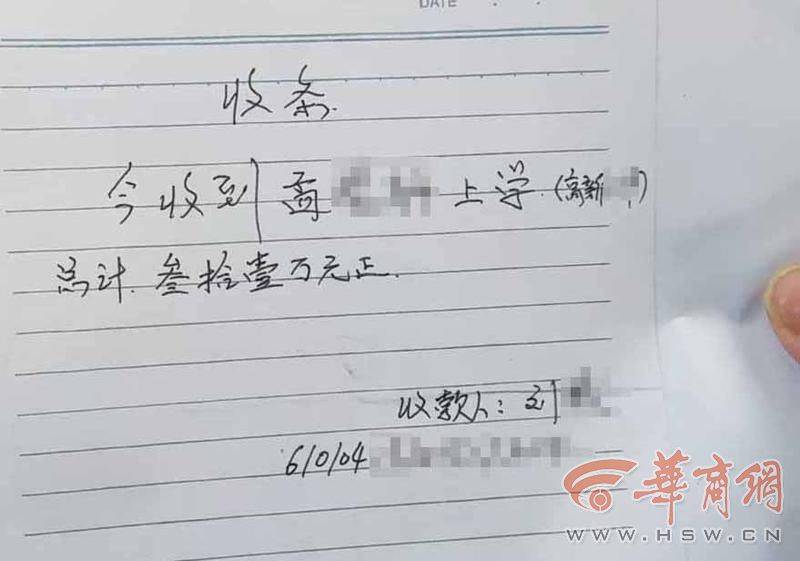 DATE
收条
今收到商 上学.(高新 )
总计.叁拾壹万元正.
收款人:刘
610104
華商網
WWW.HSW.CN